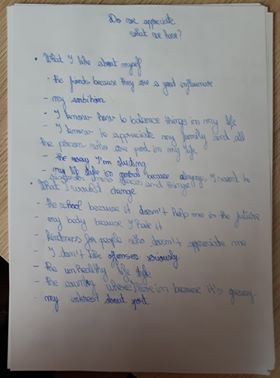 Do we appreciate
what we have?
• What I like about myself
- the friends because they are a good influence
- my ambition
- I know how to balance things in my life
- I know to appreciate my family and all
the persons who are part in my life
- the way I'm studing
- my life in general because always I want to
discover new places and things
• What I would change
- the school because it doesn't help me in the future
- my body because I hate it
- kindness for people who doesn't appreciate me
- I don't like offenses seriously
- the unhealthy life style
- the country where I live in because it's
- my interest about